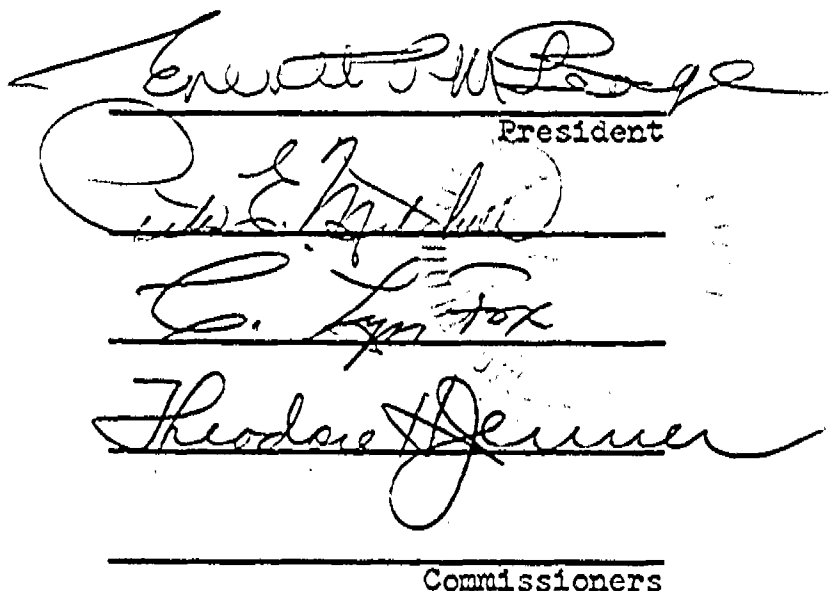 Everett
President
E. Mitchell
C. Lyn Fox
Theodore H Jenner
Commissioners